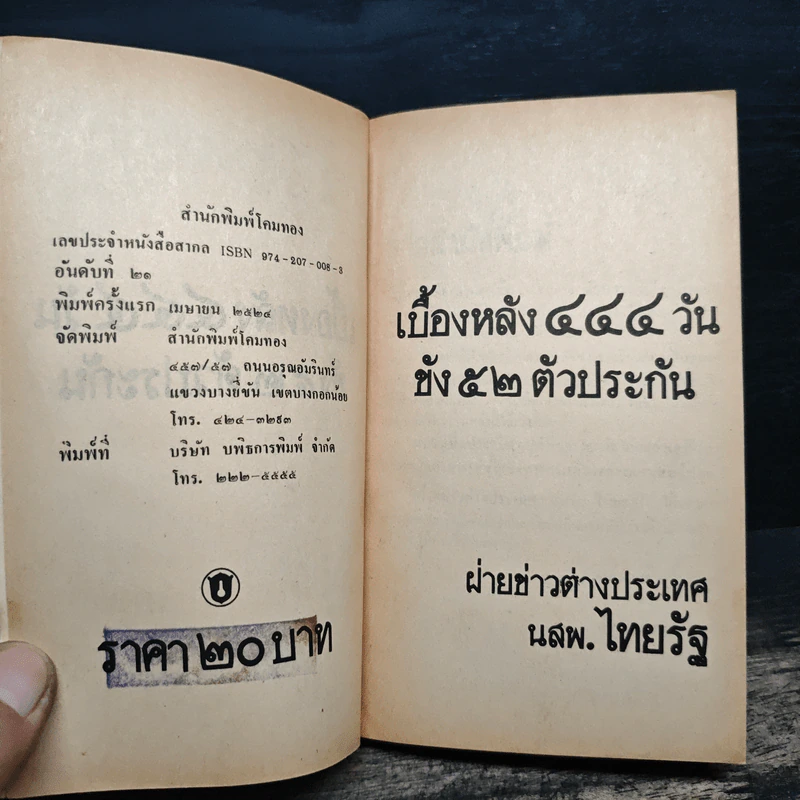 สำนักพิมพ์โคมทอง
เลขประจำหนังสือสากล ISBN 974-207-008-3
อันดับที่ ๒๑
พิมพ์ครั้งแรก เมษายน ๒๕๒๔
จัดพิมพ์ สำนักพิมพ์โคมทอง
๔๕๗/๕๗ ถนนอรุณอัมรินทร์
แขวงบางยี่ขัน เขตบางกอกน้อย
โทร. ๔๒๔-๓๒๙๓
พิมพ์ที่ บริษัท บพิธการพิมพ์ จำกัด
โทร. ๒๒๒-๕๕๕๕
ราคา ๒๐ บาท
เบื้องหลัง ๔๔๔ วัน
ขัง ๕๒ ตัวประกัน
ฝ่ายข่าวต่างประเทศ
นสพ. ไทยรัฐ